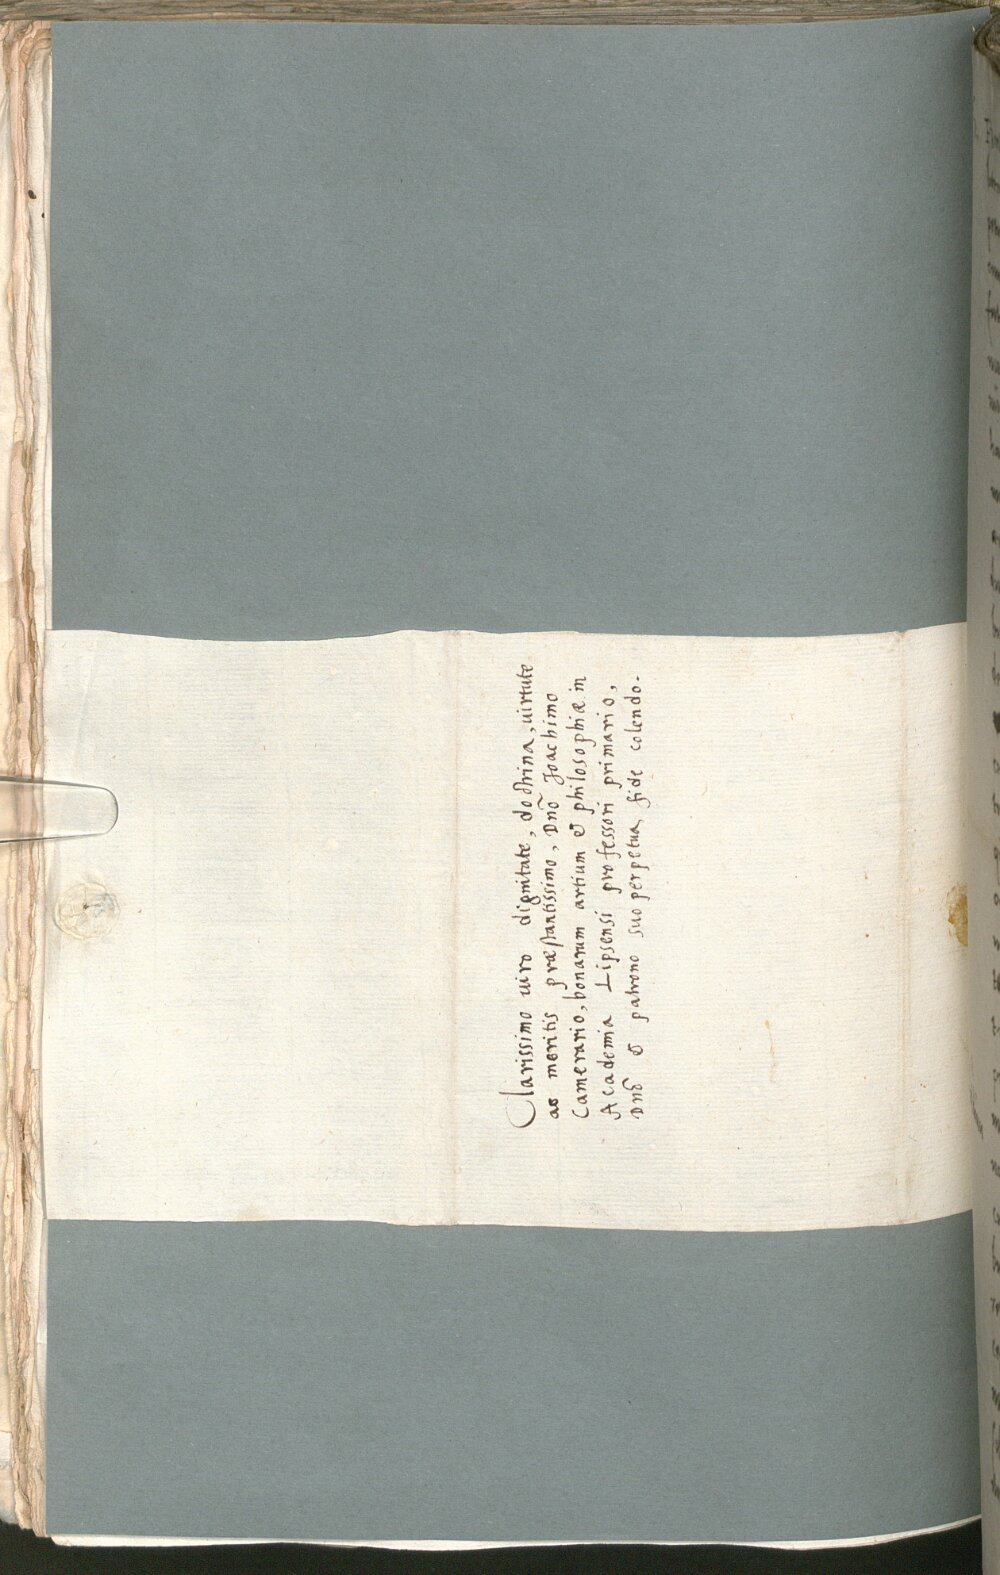 Clarissimo uiro dignitate, doctrina, uirtute
ac meritis præstantissimo, Dnō Joachimo
Camerario, bonarum artium & philosophiæ in
Academia Lipsensi professori primario,
Dnō & patrono suo perpetua fide colendo.